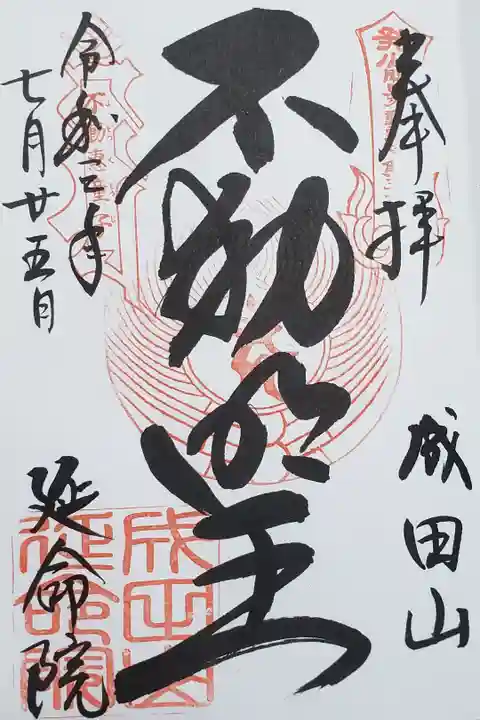 奉拝
成田山
不動明王
令和三年
七月廿五日
延命院
成田山
延命院